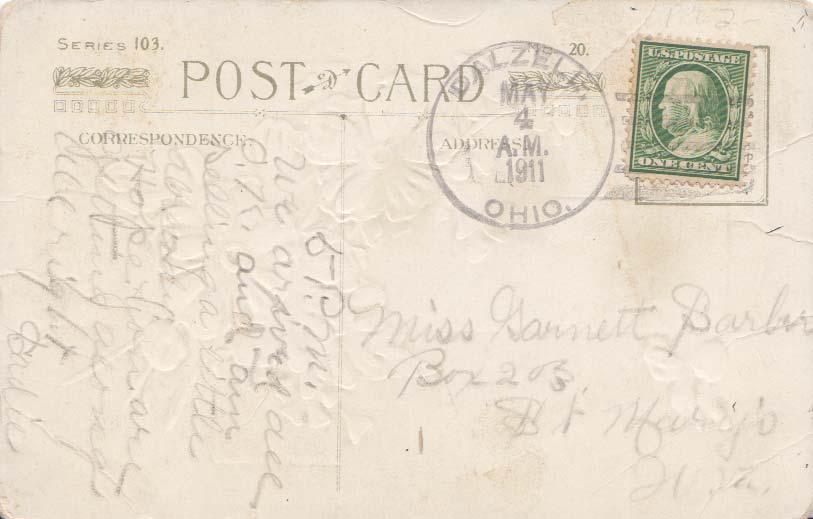 SERIES 103.
No. 20.
POST CARD
CORRESPONDENCE.
ADDRESS
DALZELL
MAY
4
A.M.
1911
OHIO.
U.S. POSTAGE
ONE CENT
8-P.M.
We arrived all
O.K. and am
feeling a little
Hope you are
getting along
all right
Miss Garnett Barber
Box 203
St Mary's
W. Va.